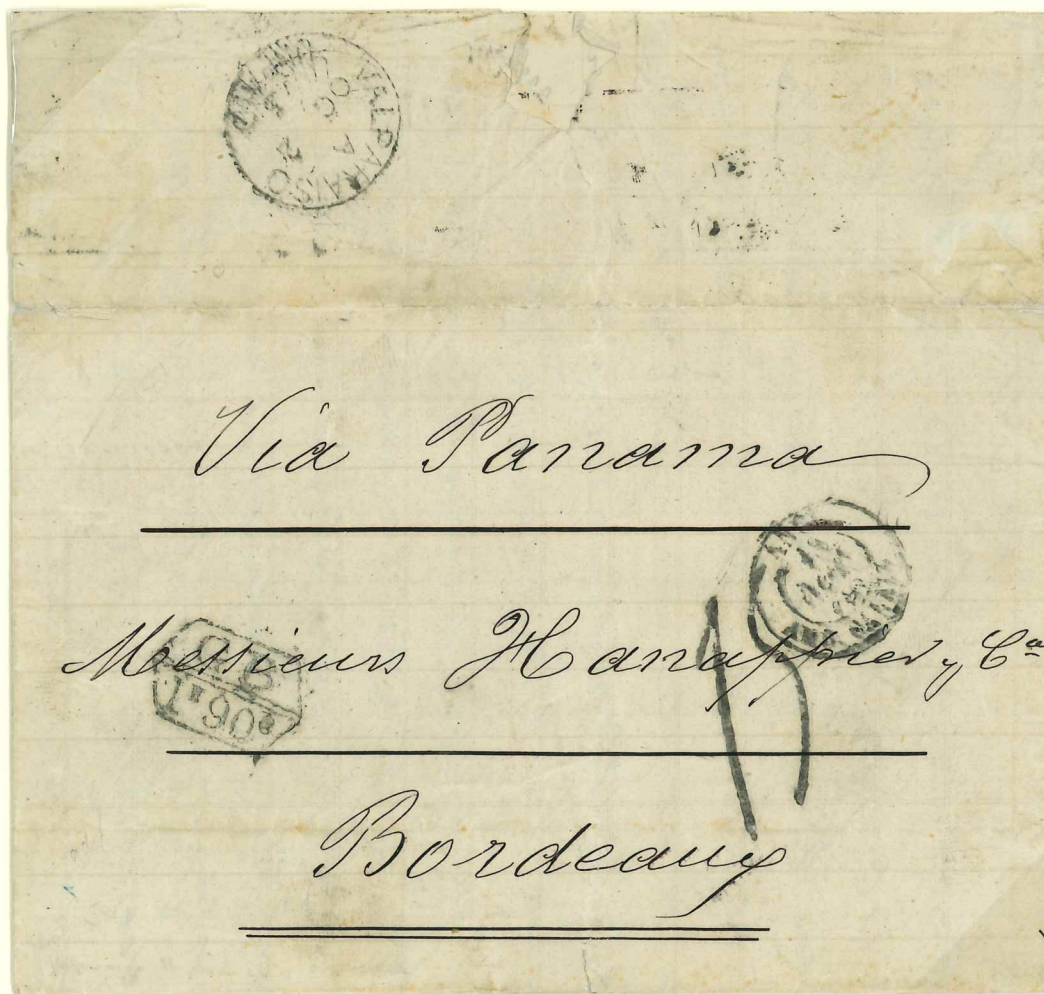 VALPARAISO
A
Via Panama
15
Messieurs Hanappier y Cª
GB
1F 90c
Bordeaux